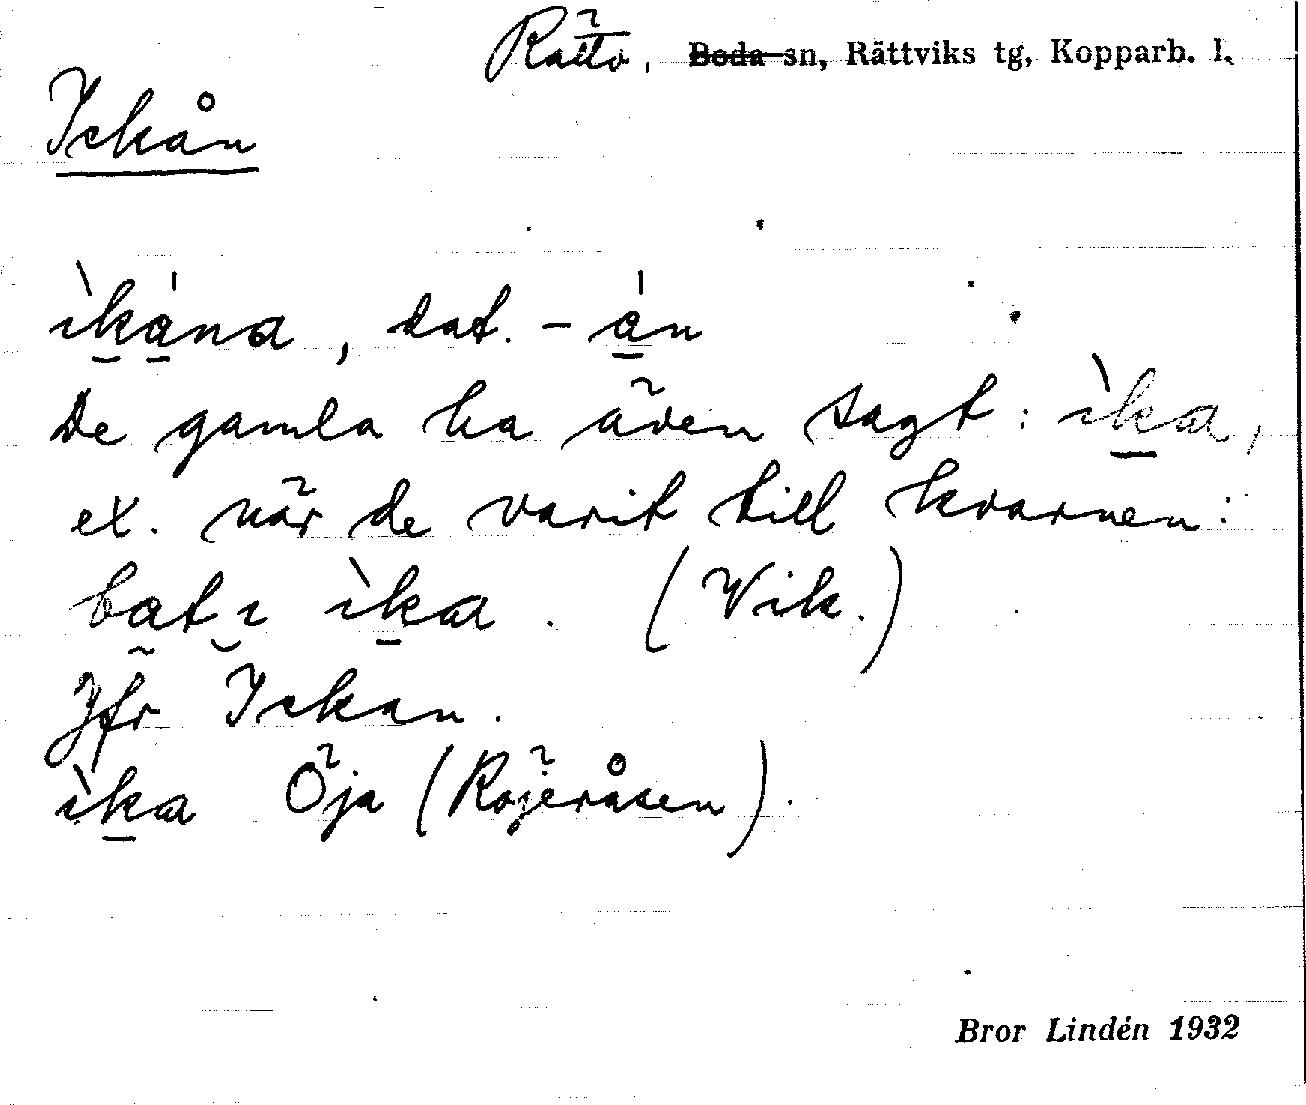 Rättv. Boda sn, Rättviks tg, Kopparb. l.
Ickån
ìkána, dat. -án
De gamla ha även sagt: ìka,
ex. när de varit till kvarnen:
batı ìka. (Vik.)
Jfr Ickan.
ìka Öja (Röjeråsen).
Bror Lindén 1932